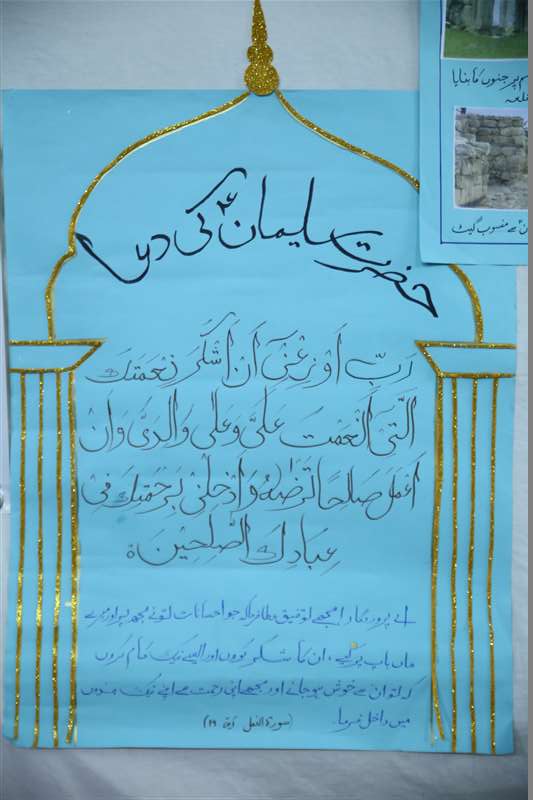 حضرت سلیمانؑ کی دعا
رَبِّ اَوْزِعْنِیْٓ اَنْ اَشْکُرَ نِعْمَتَکَ
الَّتِیْٓ اَنْعَمْتَ عَلَیَّ وَعَلٰی وَالِدَیَّ وَاَنْ
اَعْمَلَ صَالِحًا تَرْضٰہُ وَاَدْخِلْنِیْ بِرَحْمَتِکَ فِیْ
عِبَادِکَ الصّٰلِحِیْنَ ہ
اے پروردگار! مجھے توفیق عطا فرما کہ جو احسانات تو نے مجھ پر اور میرے
ماں باپ پر کیے، ان کا شکر کروں اور ایسے نیک کام کروں
کہ تو ان سے خوش ہو جائے اور مجھے اپنی رحمت سے اپنے نیک بندوں
میں داخل فرما۔ (سورۃ النمل آیۃ ۱۹)
پر جنوں کا بنایا
قلعہ
سے منسوب گیٹ